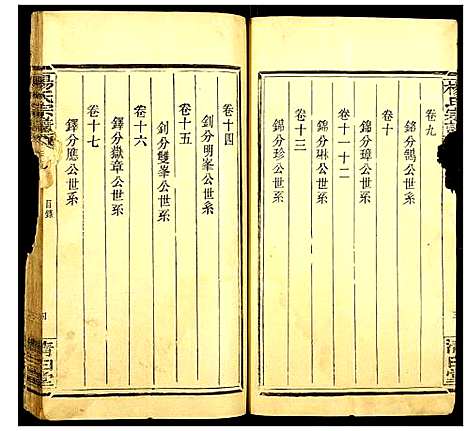 楊氏宗譜
卷九
錦分鵠公世系
卷十
錦分璋公世系
卷十一十二
錦分琳公世系
卷十三
錦分珍公世系
三
清白堂
卷十四
釗分明峯公世系
卷十五
釗分雙峯公世系
卷十六
鐸分嶽章公世系
卷十七
鐸分應公世系
楊氏宗譜
目錄
四
清白堂